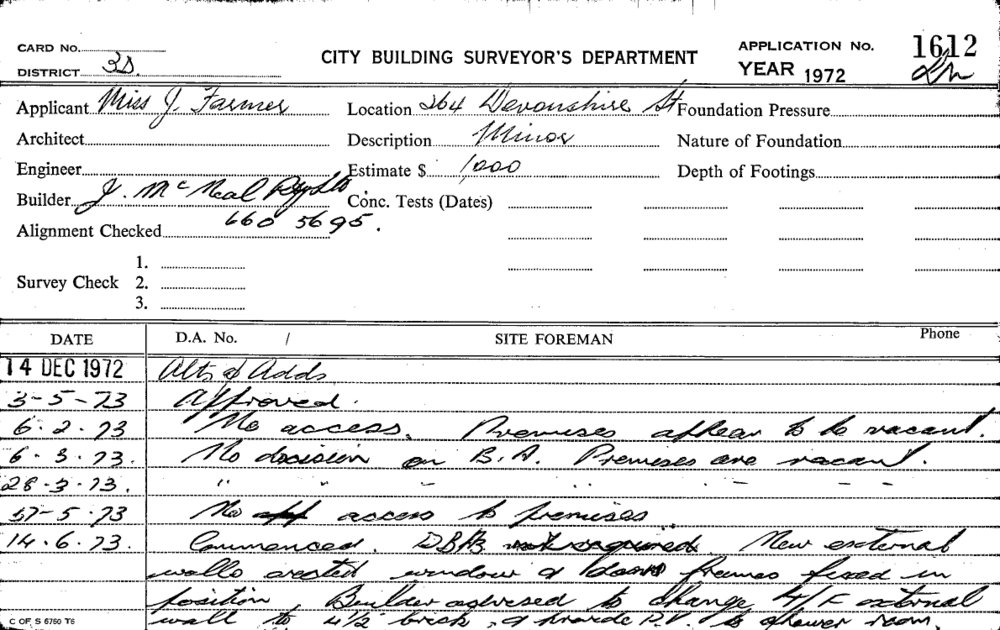 CARD NO.
CITY BUILDING SURVEYOR'S DEPARTMENT
APPLICATION No. 1612
DISTRICT 3D.
YEAR 1972
Applicant Miss J. Farmer Location 264 Devonshire St Foundation Pressure
Architect Description Minor Nature of Foundation
Engineer Estimate $ 1,000 Depth of Footings
Builder J. McNeal Conc. Tests (Dates)
660 5695.
Alignment Checked
1.
Survey Check 2.
3.
DATE D.A. No. / SITE FOREMAN Phone
14 DEC 1972 Alts & Adds
3-5-73 Approved.
6.2.73 No access. Premises appear to be vacant.
6.3.73. No decision on B.A. Premises are vacant.
28.3.73. " " - - - - -
-5.73 No app access to premises
14.6.73. Commenced. not required. New external
walls erected window & door frames fixed in
position, Builder advised to change external
wall to 4½ brick, & provide P.V. to shower room.
C OF. S 6760 T6